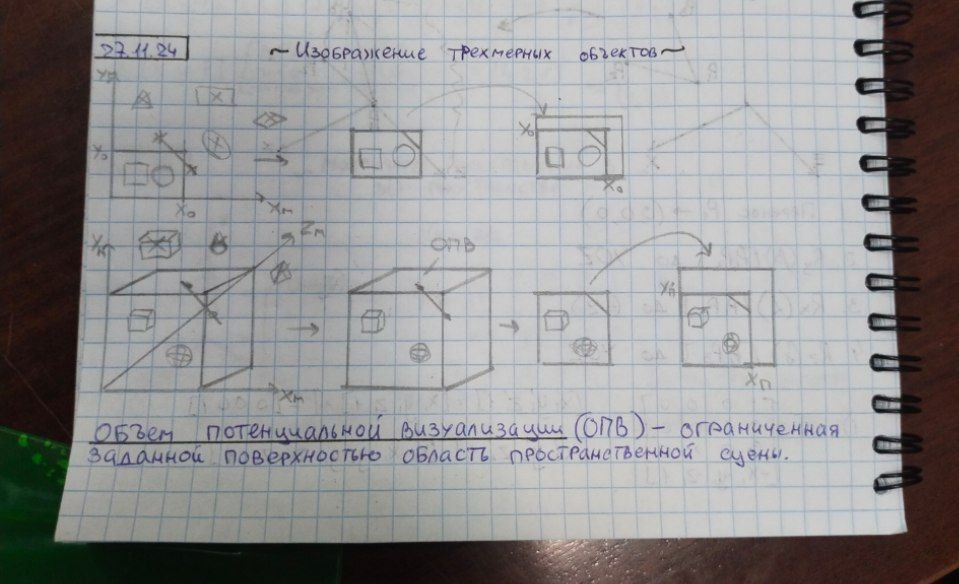 27.11.24
~Изображение трехмерных объектов~
Xo
Xm
Xo
Xo
Zm
ОПВ
Xm
Xп
Объем потенциальной визуализации (ОПВ) – ограниченная
заданной поверхностью область пространственной сцены.